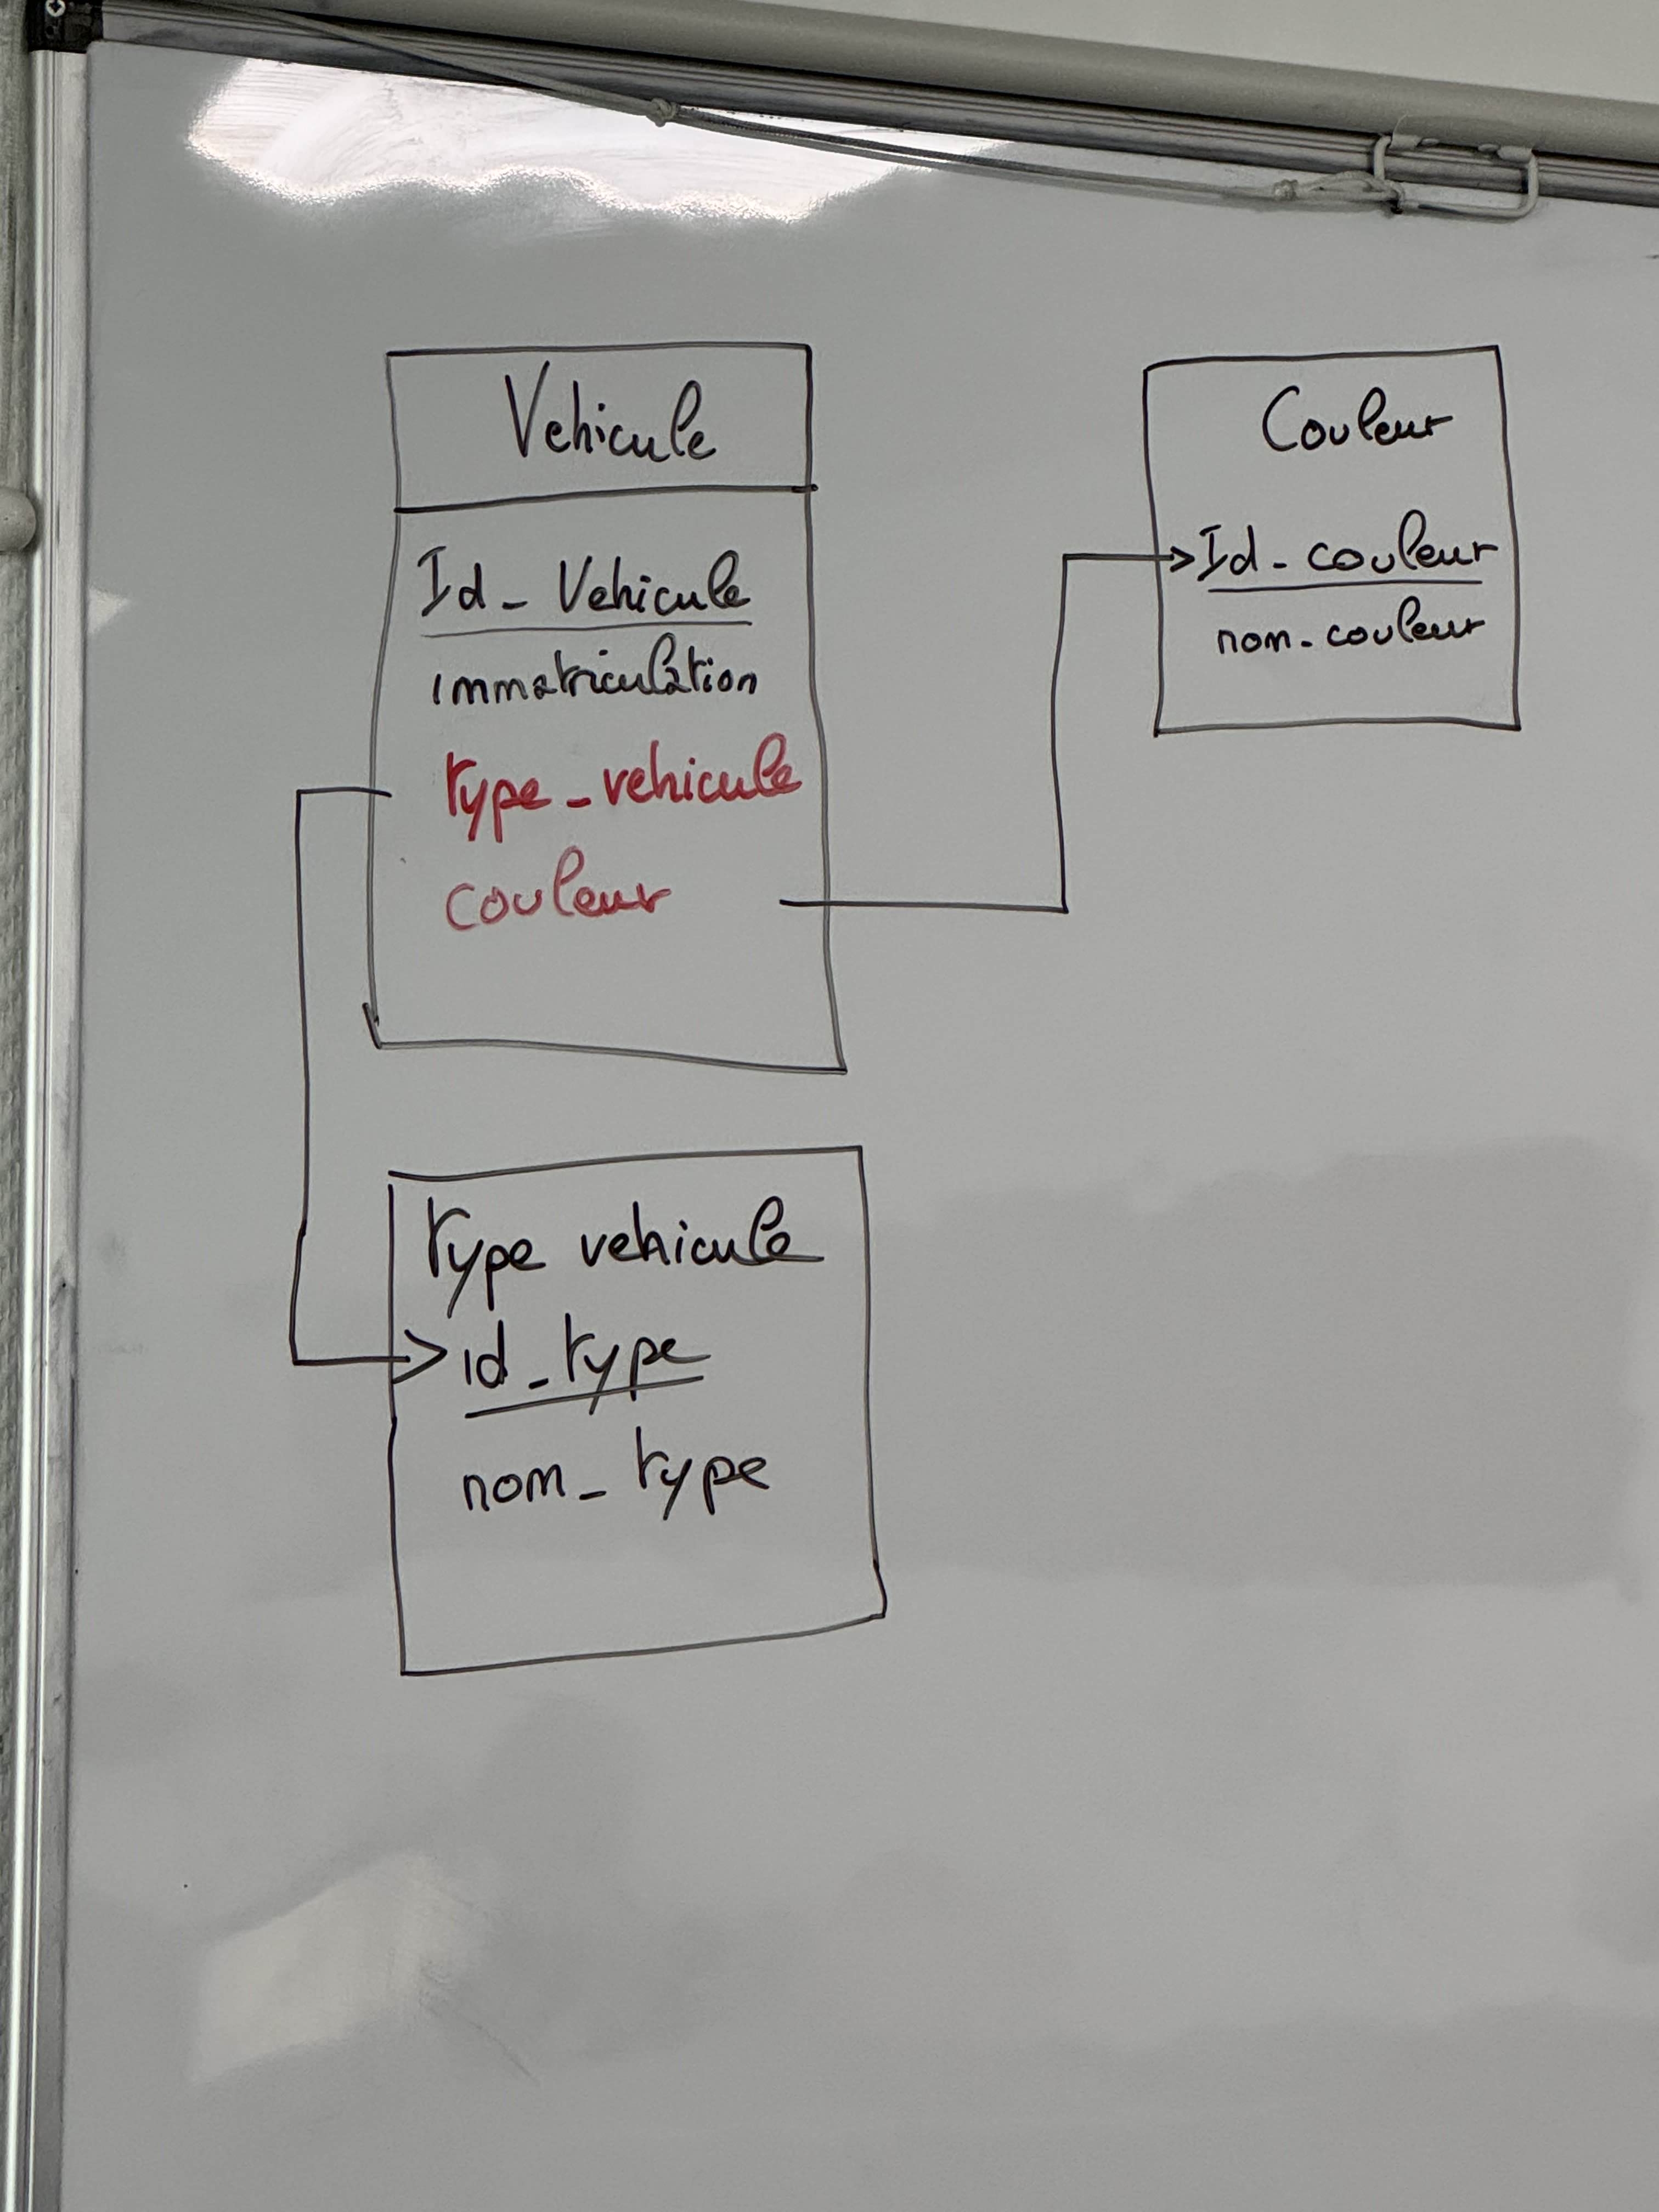 Vehicule
Id_Vehicule
immatriculation
type_vehicule
couleur
Couleur
Id_couleur
nom_couleur
Type vehicule
id_type
nom_type